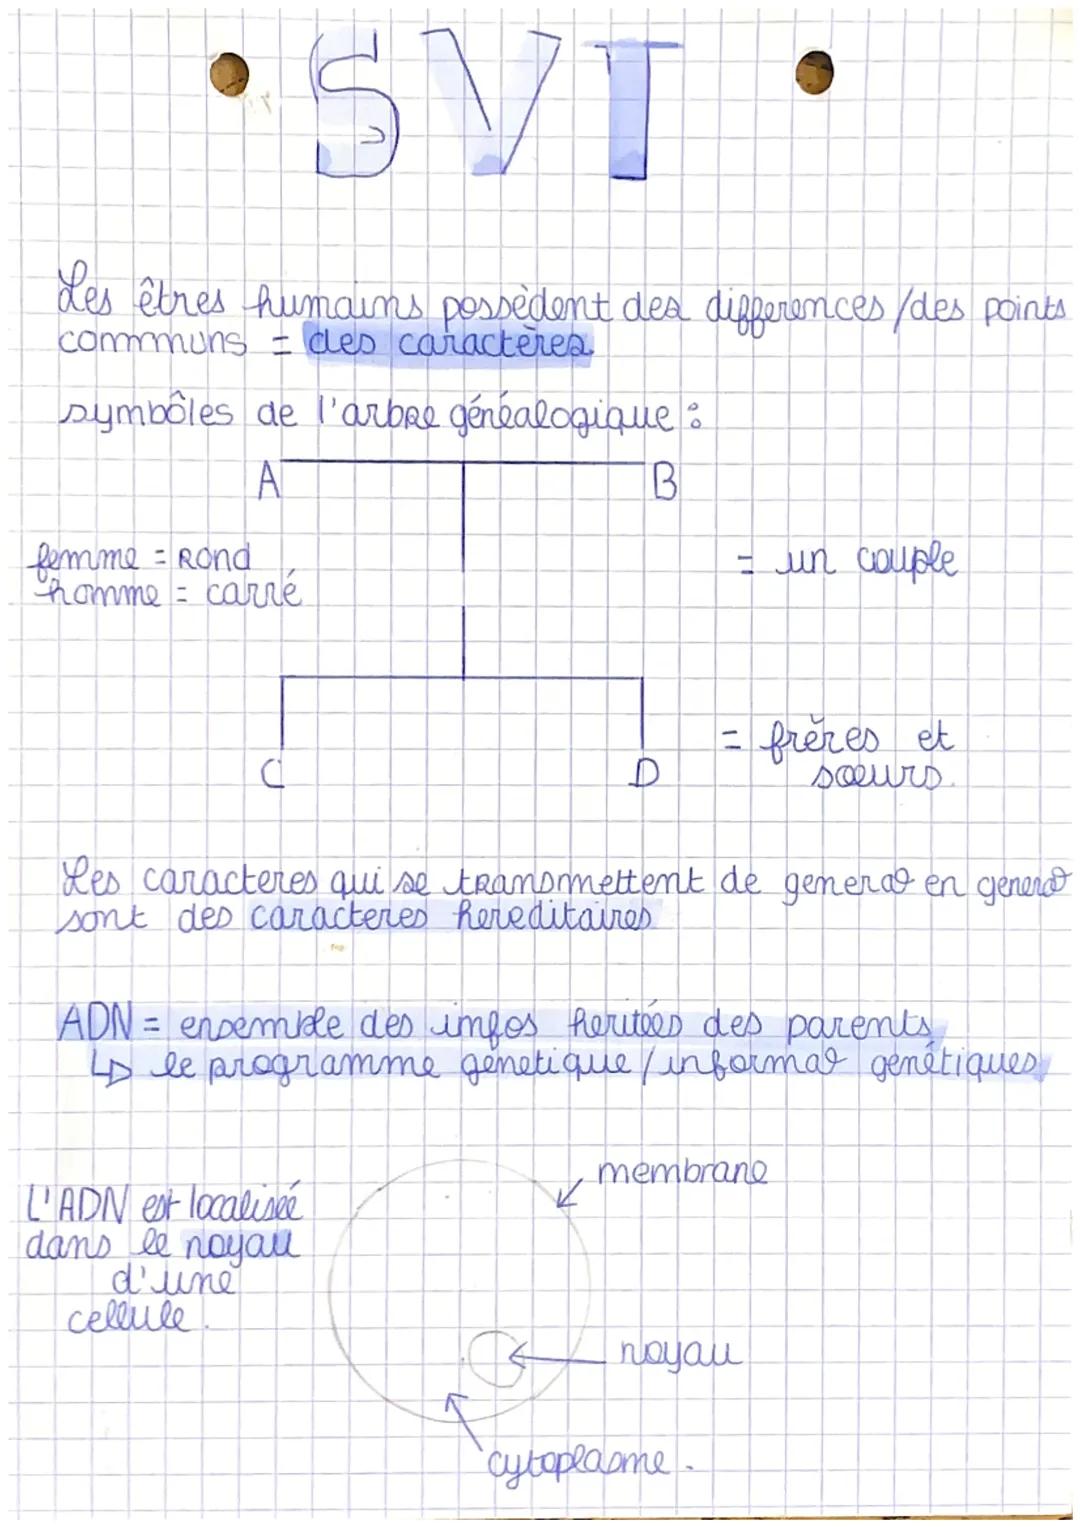 SVT
Les êtres humains possèdent des differences/des points
commmuns = des caractères
symbôles de l'arbre généalogique :
A B
femme = ROND
= un couple
homme = carré
= frères et
C D
soeurs.
Les caracteres qui se transmettent de generat° en generat°
sont des caracteres hereditaires
ADN = ensemble des infos heritées des parents
↳ le programme génetique/informat° genétiques
membrane
L'ADN est localiseé
dans le noyau
d'une
cellule.
noyau
cytoplasme.